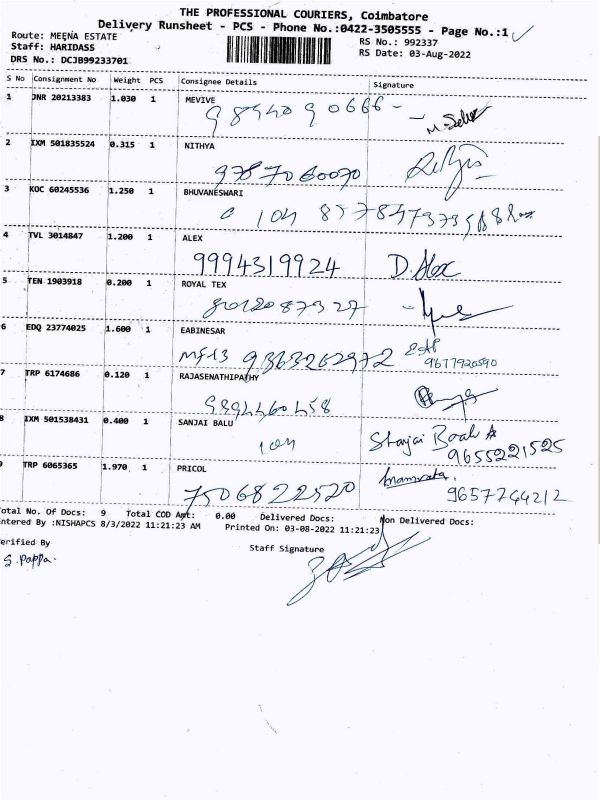 THE PROFESSIONAL COURIERS, Coimbatore
Delivery Runsheet - PCS - Phone No.:0422-3505555 - Page No.:1
Route: MEENA ESTATE
RS No.: 992337
Staff: HARIDASS
RS Date: 03-Aug-2022
DRS No.: DCJB99233701
S No Consignment No Weight PCS Consignee Details Signature
1 JNR 20213383 1.030 1 MEVIVE
9894090666
2 IXM 501835524 0.315 1 NITHYA
9787060070
3 KOC 60245536 1.250 1 BHUVANESWARI
4 TVL 3014847 1.200 1 ALEX
9994319924 D.Alex
5 TEN 1903918 0.200 1 ROYAL TEX
8012087327
6 EDQ 23774025 1.600 1 EABINESAR
9363262972
9677920590
7 TRP 6174686 0.120 1 RAJASENATHIPATHY
8 IXM 501538431 0.400 1 SANJAI BALU
9655221525
9 TRP 6065365 1.970 1 PRICOL
7506822520 9657744212
Total No. Of Docs: 9 Total COD Amt: 0.00 Delivered Docs: Non Delivered Docs:
Entered By :NISHAPCS 8/3/2022 11:21:23 AM Printed On: 03-08-2022 11:21:23
Verified By
Staff Signature
S. Pappa.